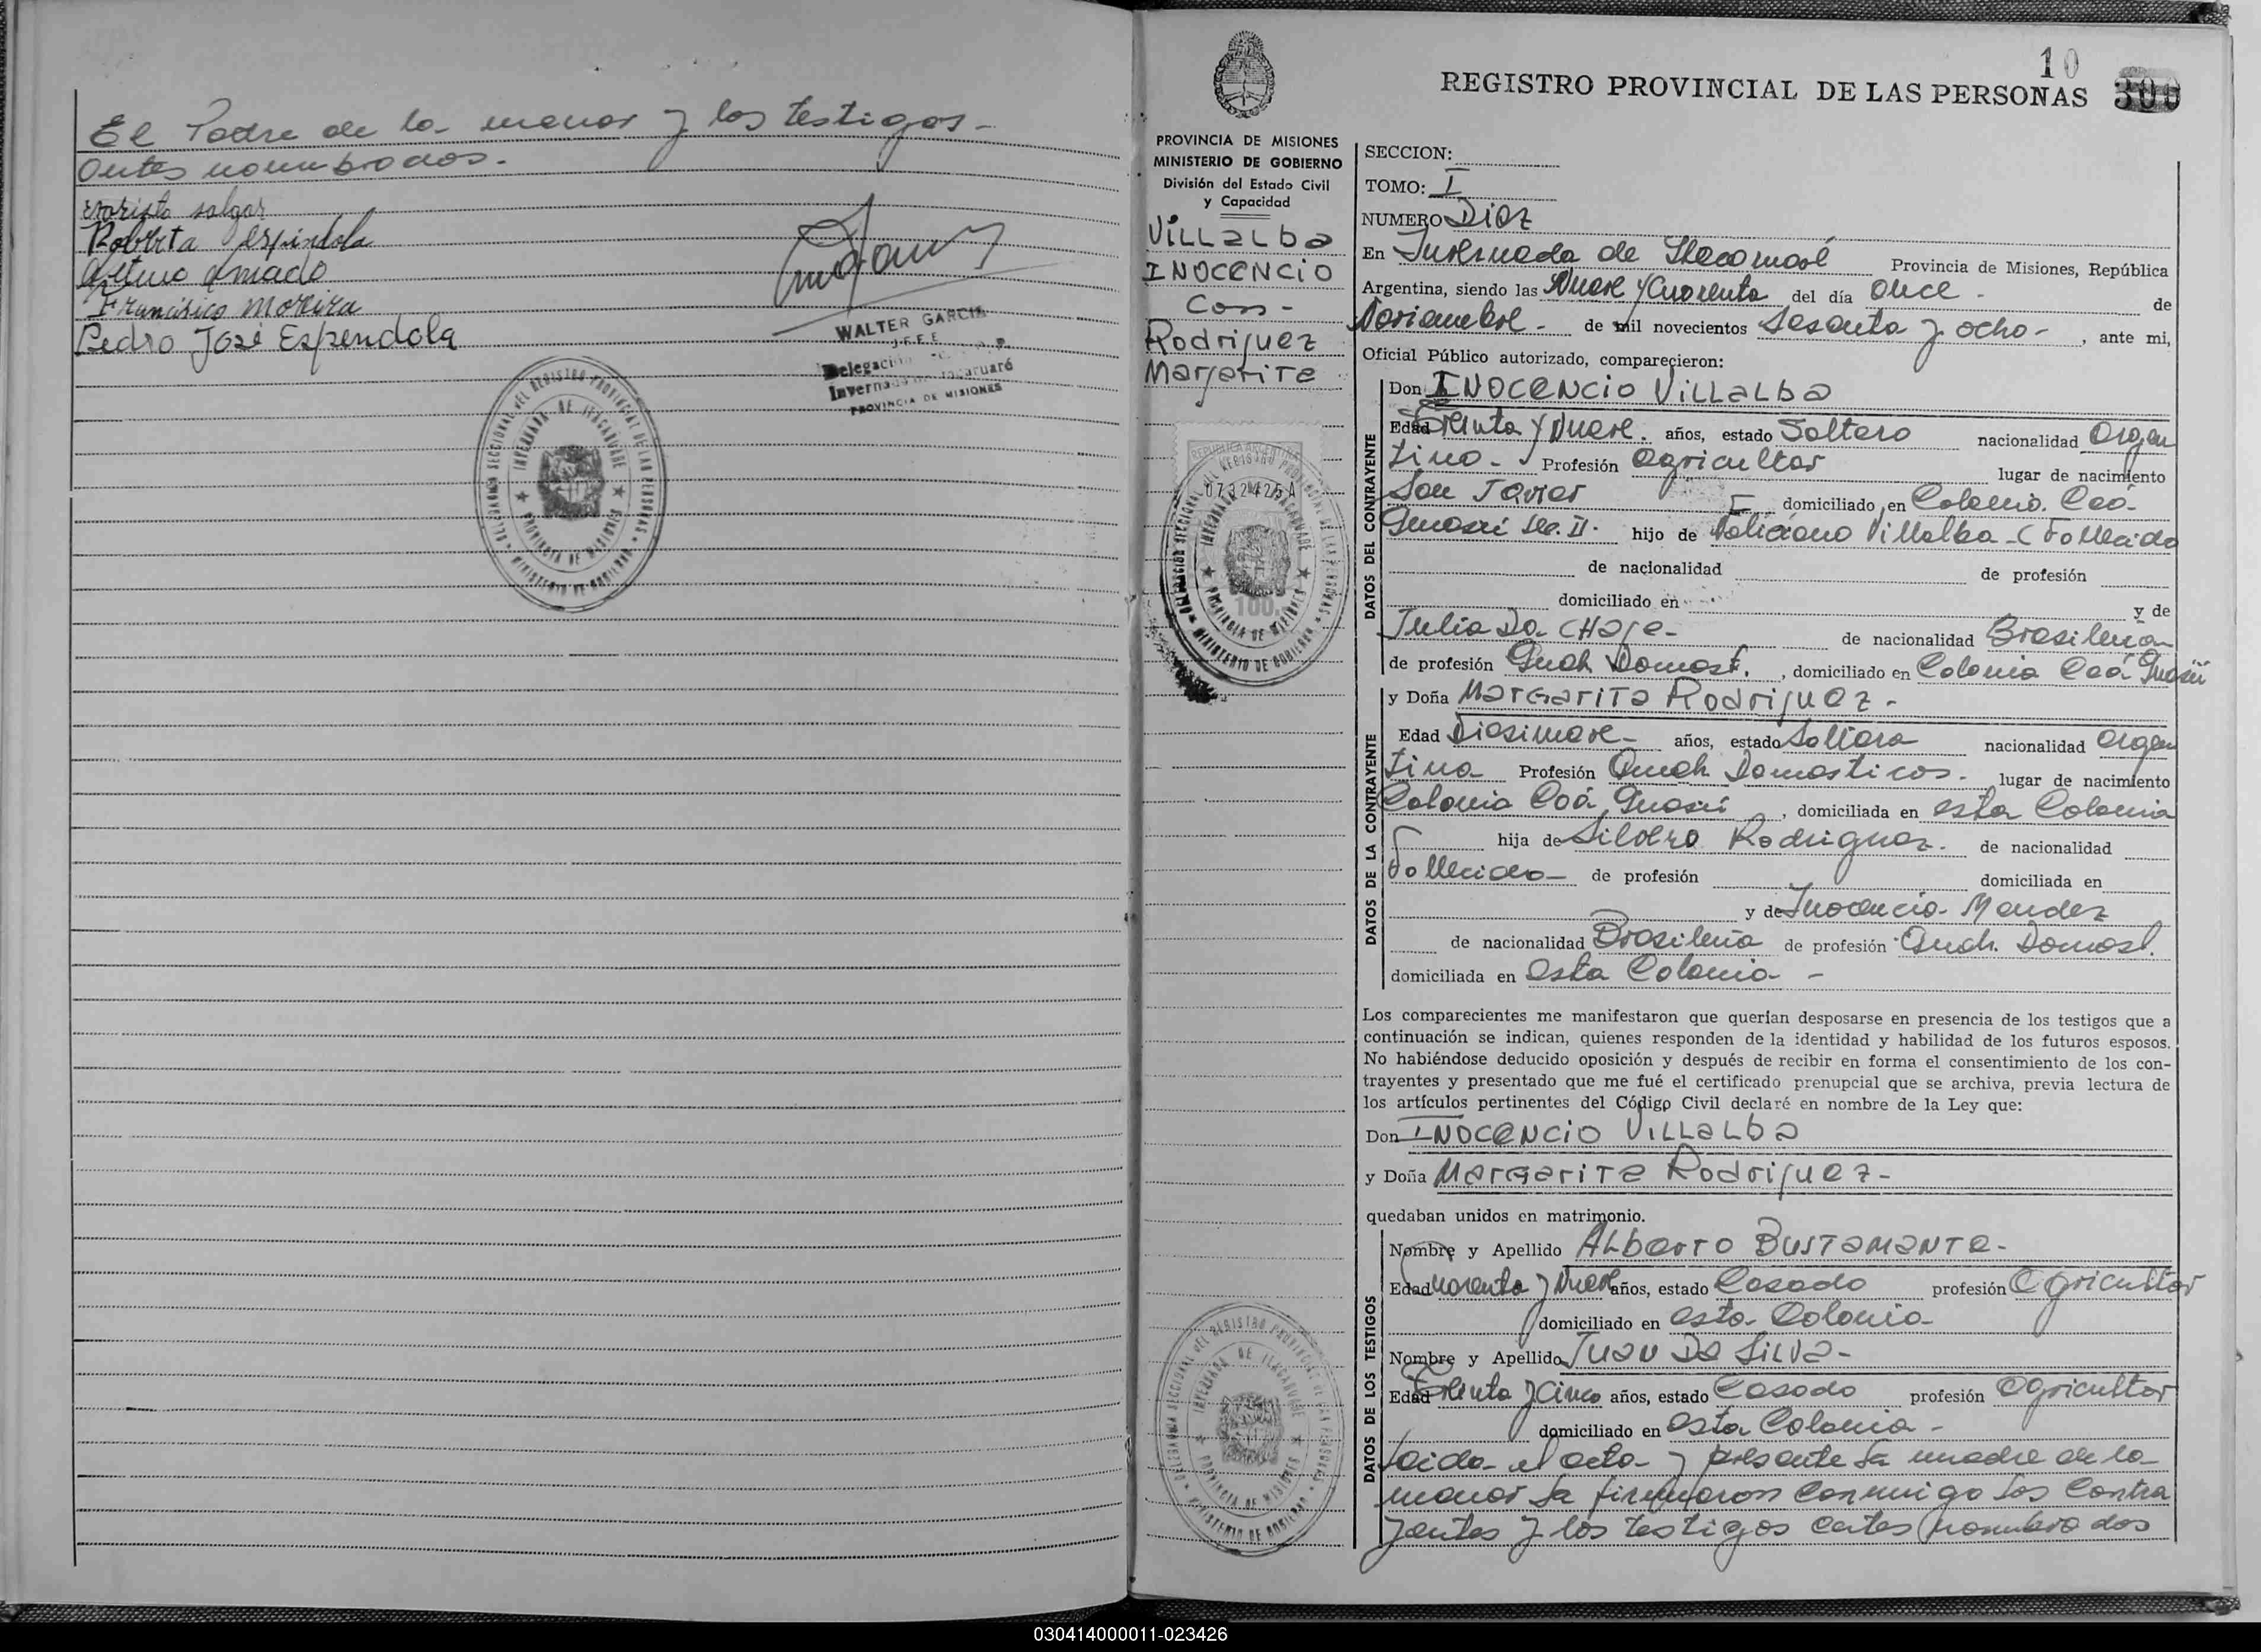 El Padre de la menor y los testigos-
antes nombrados.
Evaristo salgar
Roberta Espindola
Arturo Amado
Francisico Moreira
Pedro José Espendola
WALTER GARCIA
J.E.E.E.
Delegación
Invernada de Itacaruaré
PROVINCIA DE MISIONES
DELEGACION SECCIONAL DEL REGISTRO PROVINCIAL DE LAS PERSONAS
INVERNADA DE ITACARUARE
PROVINCIA DE MISIONES
MINISTERIO DE GOBIERNO
10
REGISTRO PROVINCIAL DE LAS PERSONAS 300
PROVINCIA DE MISIONES
MINISTERIO DE GOBIERNO
División del Estado Civil
y Capacidad
VILLALBA
INOCENCIO
Con-
Rodriguez
Margarita
REPUBLICA ARGENTINA
100
DELEGACION SECCIONAL DEL REGISTRO PROVINCIAL DE LAS PERSONAS
INVERNADA DE ITACARUARE
PROVINCIA DE MISIONES
MINISTERIO DE GOBIERNO
SECCION:
TOMO: I
NUMERO Diez
En Invernada de Itacaruaré Provincia de Misiones, República
Argentina, siendo las Nueve y Cuarenta del día once- de
Noviembre- de mil novecientos Sesenta y ocho- , ante mi,
Oficial Público autorizado, comparecieron:
DATOS DEL CONTRAYENTE
Don INOCENCIO VILLALBA
Edad Treinta y Nueve. años, estado Soltero nacionalidad Argen
tino- Profesión agricultor lugar de nacimiento
San Javier domiciliado en Colonia Caá-
Guazú Sec. II. hijo de Feliciano Villalba-(Fallecido
de nacionalidad de profesión
domiciliado en y de
Julia Da CHaga- de nacionalidad Brasileña
de profesión Queh Domest. , domiciliado en Colonia Caá Guazú
DATOS DE LA CONTRAYENTE
y Doña Margarita Rodriguez-
Edad Diesinueve- años, estado Soltera nacionalidad Argen
tina Profesión Queh Domesticos. lugar de nacimiento
Colonia Caá Guazú , domiciliada en esta Colonia
hija de Silvero Rodriguez. de nacionalidad
Fallecido- de profesión domiciliada en
y de Inocencia Mendez
de nacionalidad Brasileña de profesión Queh. Domest.
domiciliada en esta Colonia-
Los comparecientes me manifestaron que querían desposarse en presencia de los testigos que a
continuación se indican, quienes responden de la identidad y habilidad de los futuros esposos.
No habiéndose deducido oposición y después de recibir en forma el consentimiento de los con-
trayentes y presentado que me fué el certificado prenupcial que se archiva, previa lectura de
los artículos pertinentes del Código Civil declaré en nombre de la Ley que:
Don INOCENCIO VILLALBA
y Doña Margarita Rodriguez-
quedaban unidos en matrimonio.
DATOS DE LOS TESTIGOS
Nombre y Apellido Alberto Bustamante-
Edad Cuarenta y Nueve años, estado Casado profesión Agricultor
domiciliado en esta Colonia
Nombre y Apellido Juan Da Silva-
Edad Treinta y Cinco años, estado Casado profesión Agricultor
domiciliado en esta Colonia-
Leida- el acta- y presente la madre de la
menor la firmaron conmigo los Contra
yentes y los testigos antes nombrados
DELEGACION SECCIONAL DEL REGISTRO PROVINCIAL DE LAS PERSONAS
INVERNADA DE ITACARUARE
PROVINCIA DE MISIONES
MINISTERIO DE GOBIERNO
030414000011-023426